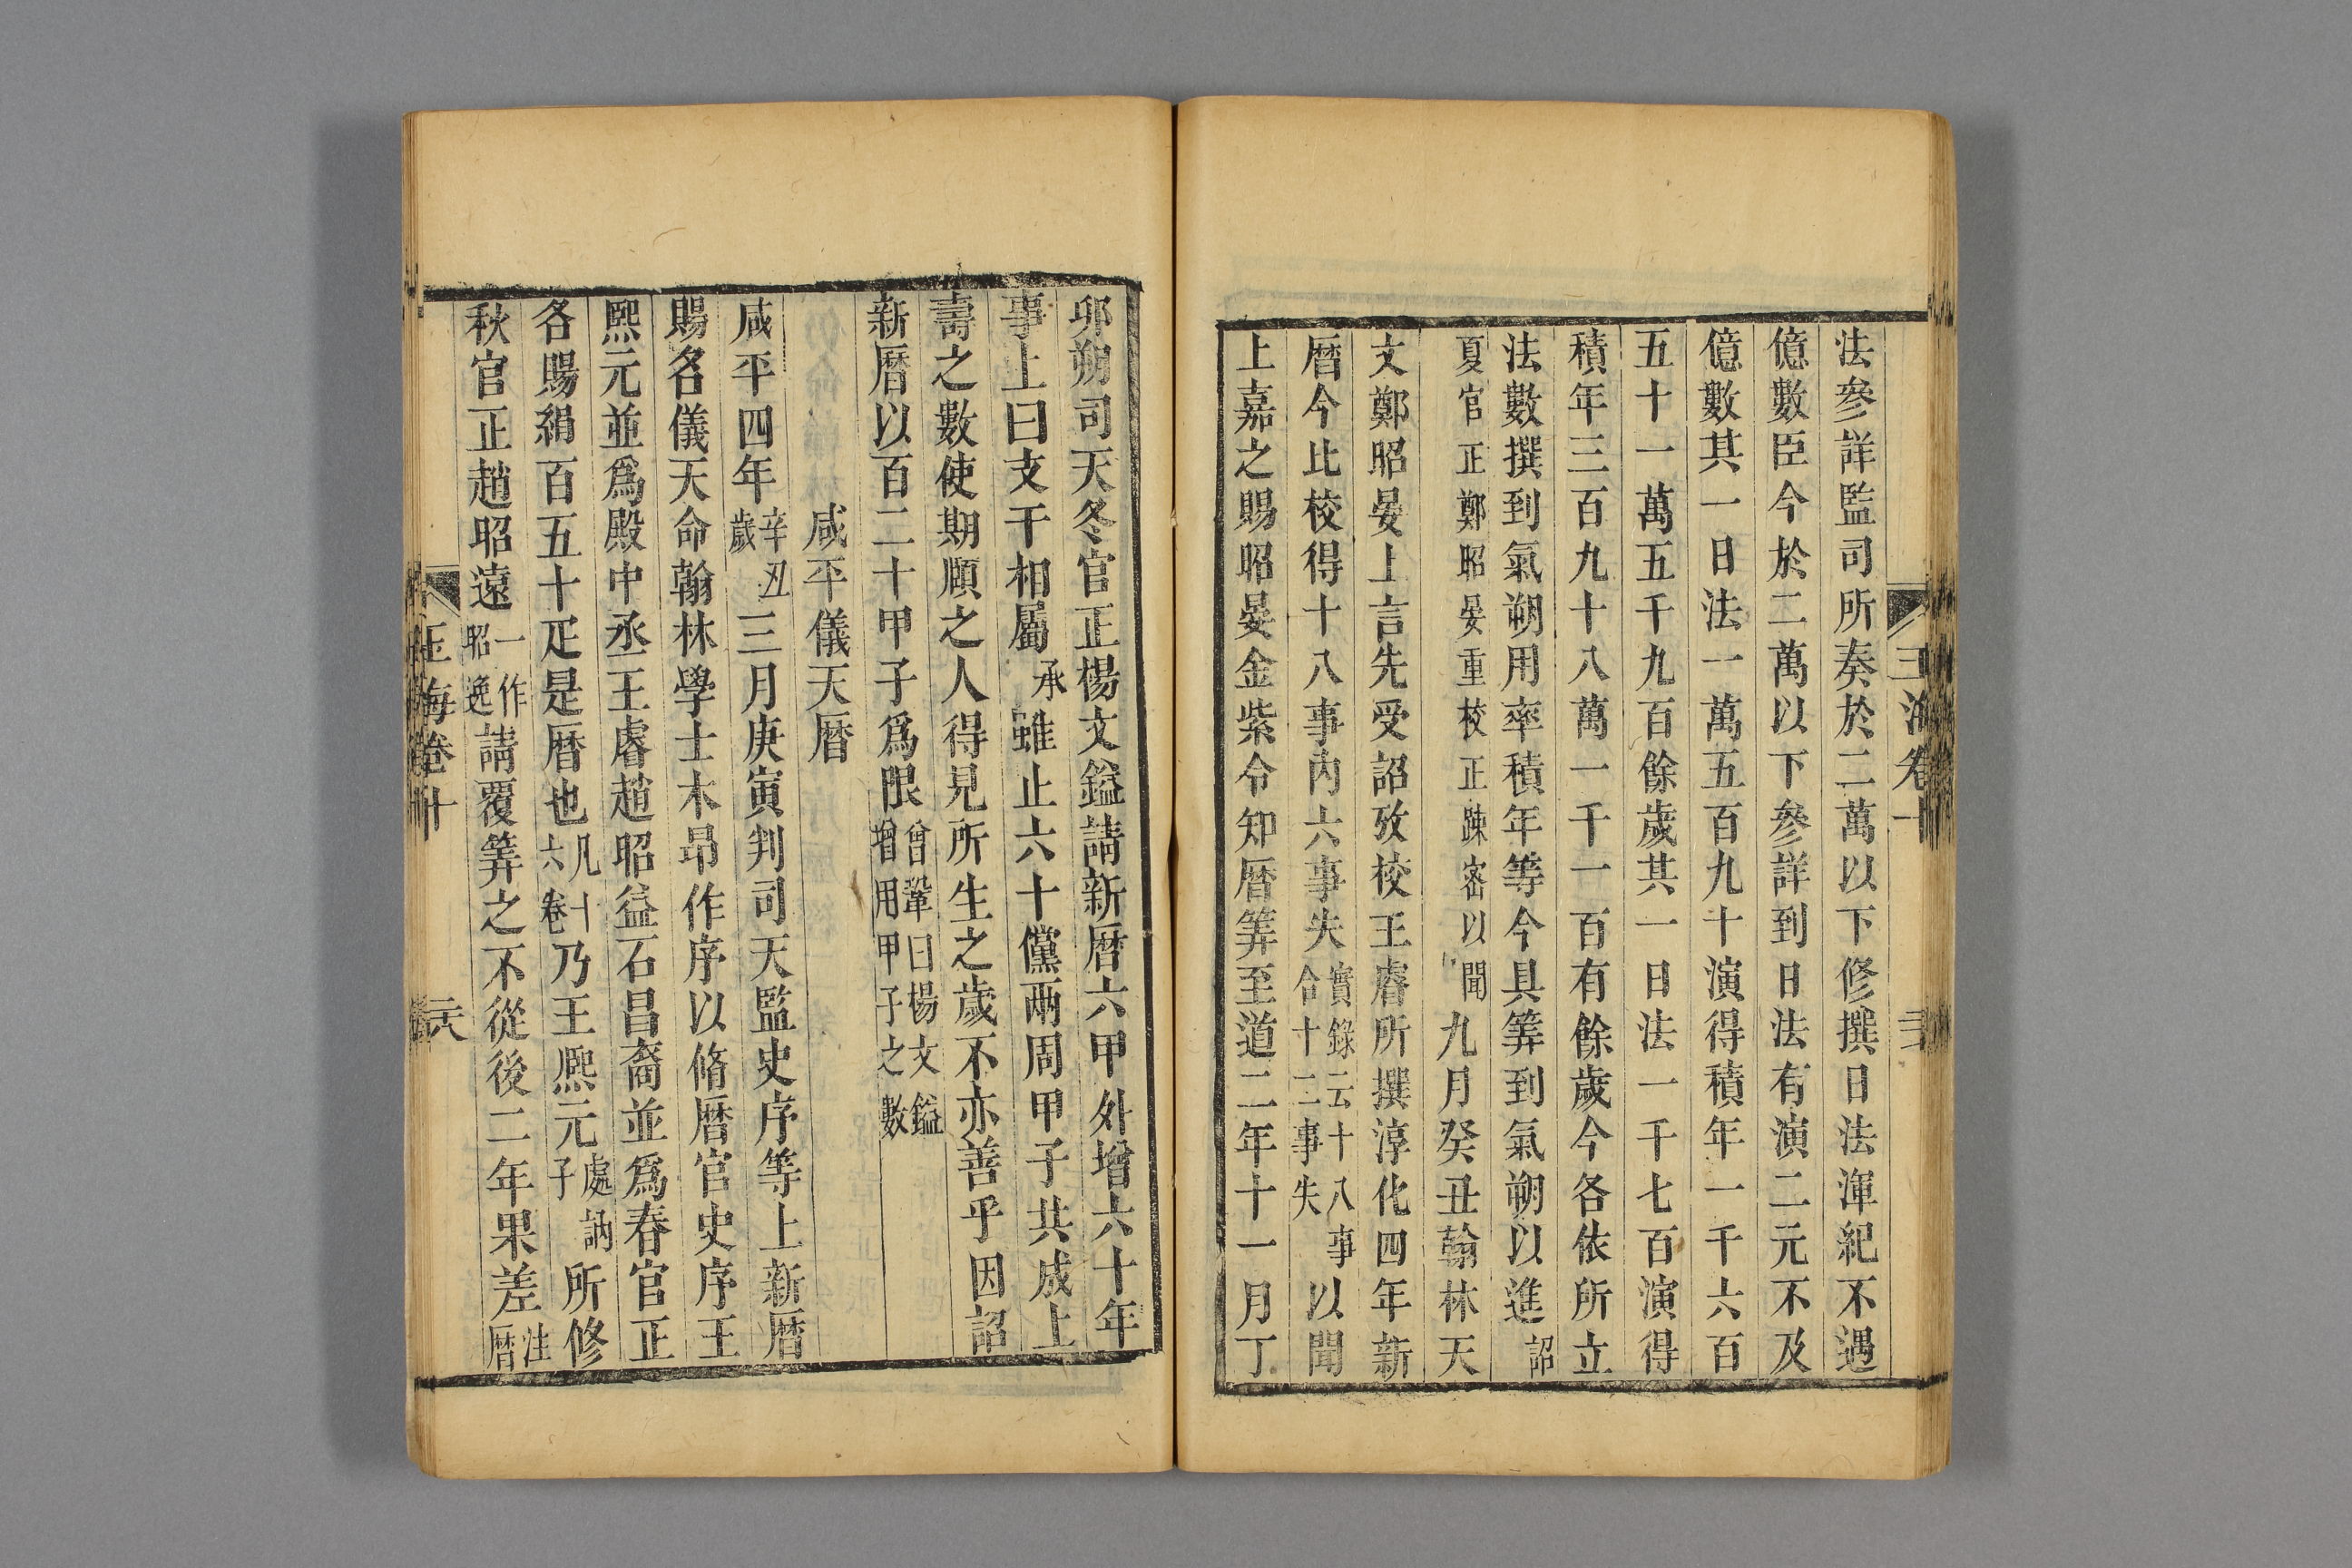 法參詳監司所奏於二萬以下修撰日法渾紀不遇
億數臣今於二萬以下參詳到日法有演二元不及
億數其一日法一萬五百九十演得積年一千六百
五十一萬五千九百餘歲其一日法一千七百演得
積年三百九十八萬一千一百有餘歲今各依所立
法數撰到氣朔用率積年等今具筭到氣朔以進詔
夏官正鄭昭晏重校正踈密以聞九月癸丑翰林天
文鄭昭晏上言先受詔攷校王睿所撰淳化四年新
曆今比校得十八事內六事失實錄云十八事合十二事失以聞
上嘉之賜昭晏金紫令知曆筭至道二年十一月丁
卯朔司天冬官正楊文鎰請新曆六甲外增六十年
事上曰支干相屬承雖止六十儻兩周甲子共成上
壽之數使期頤之人得見所生之歲不亦善乎因詔
新曆以百二十甲子爲限曾鞏曰楊文鎰增用甲子之數
咸平儀天曆
咸平四年辛丑歲三月庚寅判司天監史序等上新曆
賜名儀天命翰林學士朱昂作序以脩曆官史序王
熙元並爲殿中丞王睿趙昭益石昌裔並爲春官正
各賜絹百五十疋是曆也凡十六卷乃王熙元處訥子所修
秋官正趙昭遠一作昭逸請覆筭之不從後二年果差注曆
玉海卷十